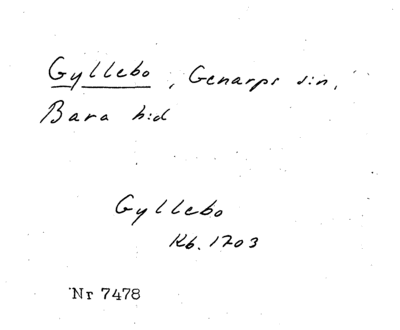 Gyllebo, Genarps s:n,
Bara h:d
Gyllebo
Kb. 1703
Nr 7478